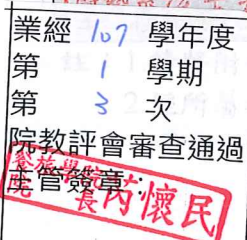 業經 107 學年度
第 1 學期
第 3 次
院教評會審查通過
主管簽章：
餐旅學院
院長芮懷民